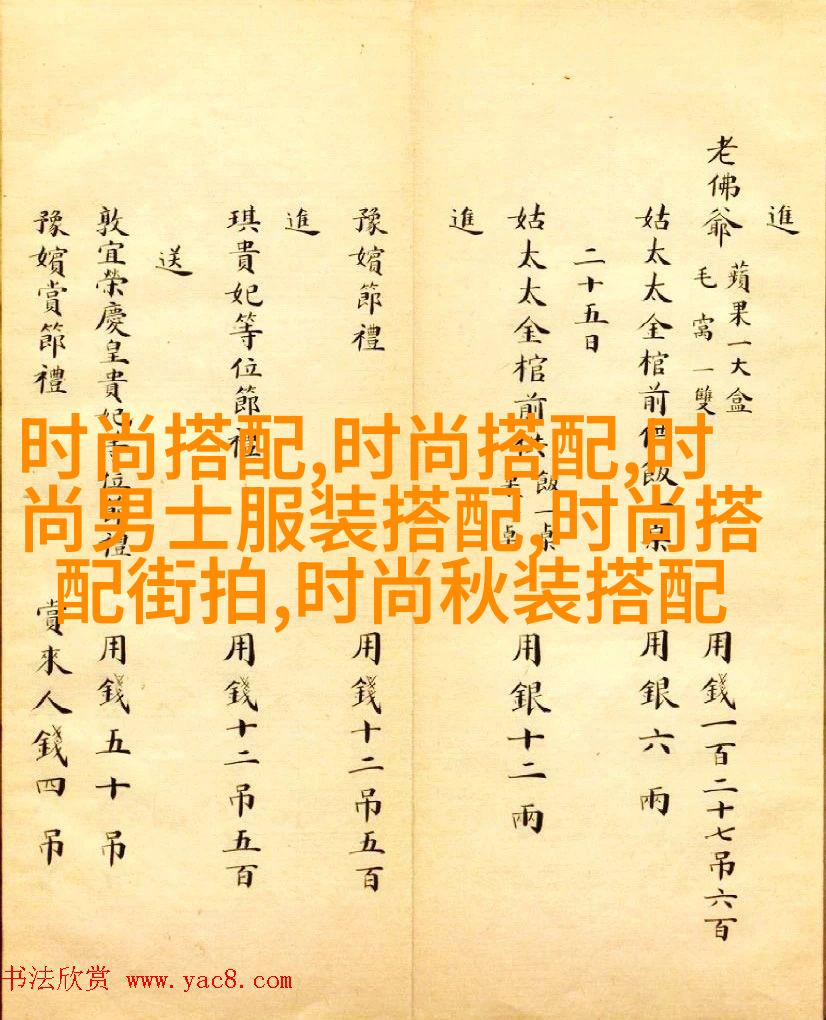 進
老佛爺 蘋果一大盒 毛窩一雙 用錢一百二十七吊六百
姑太太金棺前供飯一桌 用銀六兩
二十五日
姑太太金棺前供飯一桌 桌 用銀十二兩
進
豫嬪節禮 用錢十二吊五百
進
琪貴妃等位節禮 用錢十二吊五百
送
敦宜榮慶皇貴妃等位節禮 用錢五十吊
豫嬪賞節禮 賞來人錢四吊
时尚搭配,时尚搭配,时
尚男士服装搭配,时尚搭
配街拍,时尚秋装搭配
书法欣赏 www.yac8.com